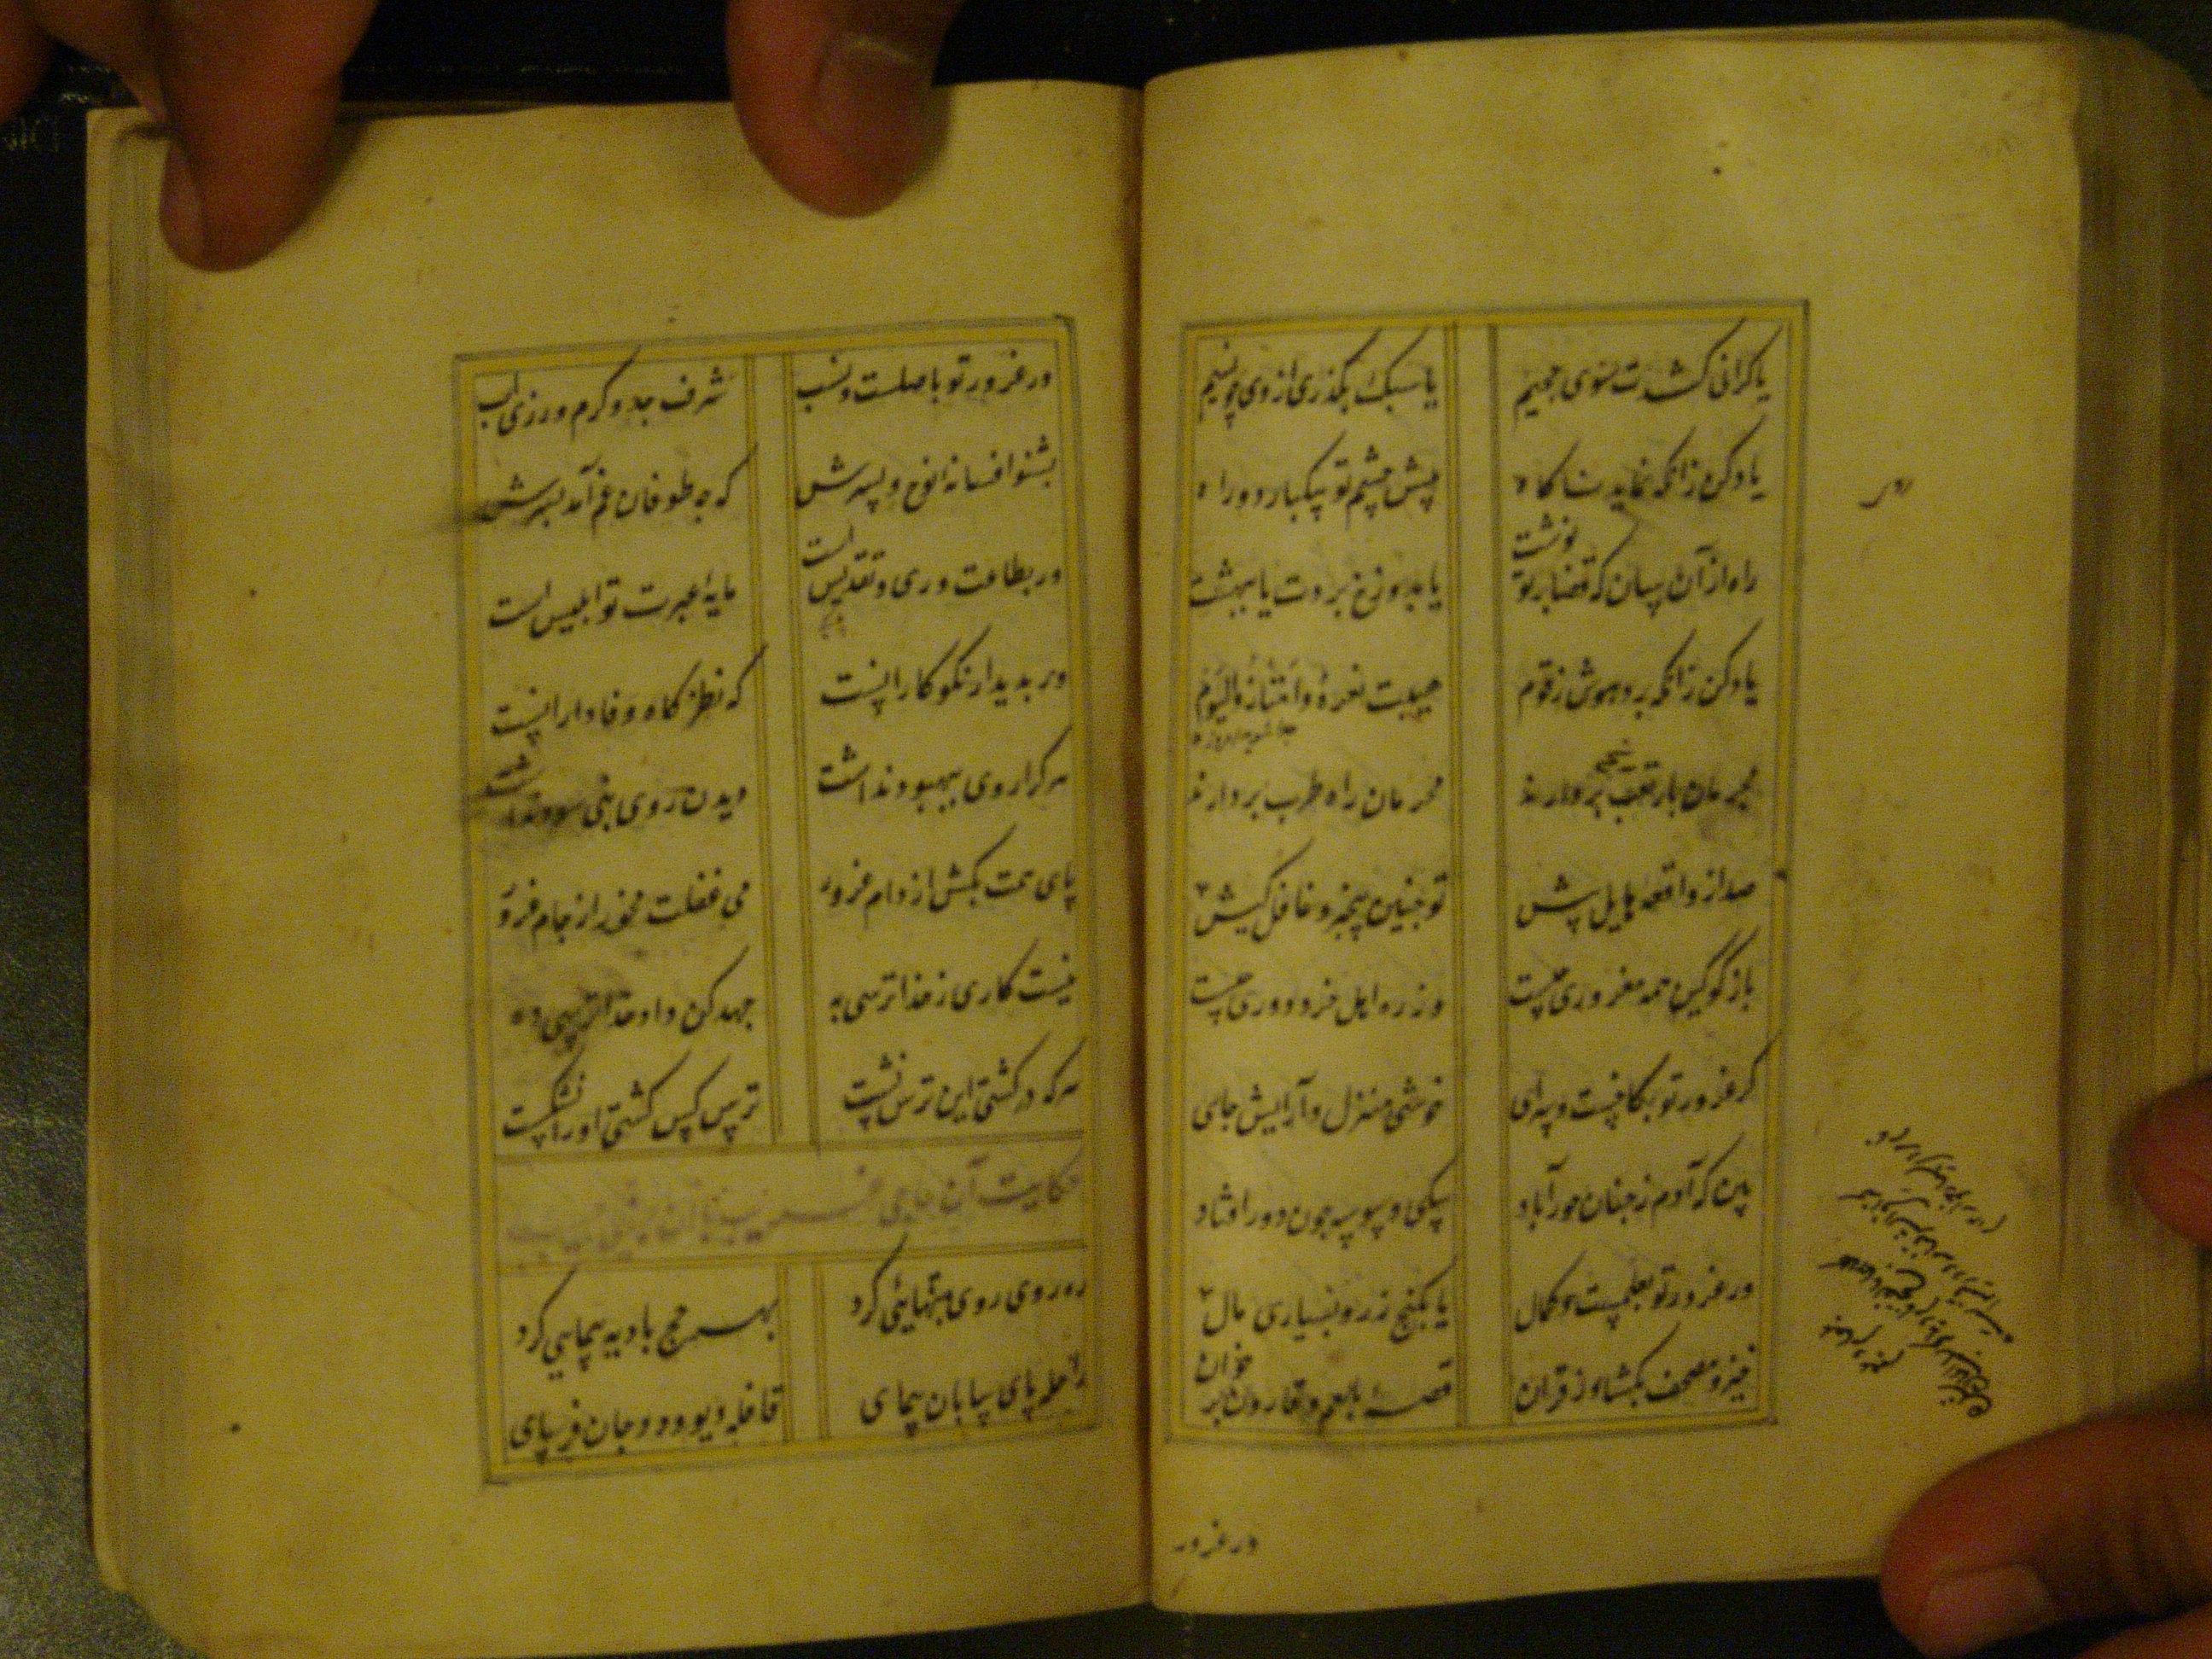 یا گرانی کشدت سوی جحیم
یا سبک بگذری از وی چو نسیم
یاد کن زانکه نماید ناگاه
پیش چشم تو بیکبار دو راه
نوشت
راه از آن پسان که قضا بر تو
یا بدوزخ بردت یا ببهشت
یاد کن زانکه برد هوش ز قوم
هیبت نعره وامتازوا الیوم
مجرمان بار تعب بردارند
محرمان راه طرب بردارند
صد از واقعه هایل پیش
تو چنین بیخبر و غافل کیش
باز گو کین همه مغروری چیست
وز ره اهل خرد دوری چیست
گر غرور تو بکاخیست و سرای
خوشی منزل و آرایش جای
بین که آدم ز جنان حورآباد
بیکی وسوسه چون دور افتاد
ور غرور تو بعلمست و کمال
یا بگنج زر و بسیاری مال
خیز و مصحف بگشا وز قران
خوان
قصه بلعم و قارون بر
در غرور
ور غرور تو باصلست و نسب
شرف جد و کرم ورزی اب
بشنو افسانه نوح و پسرش
که چه طوفان غم آمد بسرش
است
ور بطاعت وری و تقدیس
مایه عبرت تو ابلیس است
ور بدیدار نکوکارانست
که نظرگاه وفادارانست
هر کرا روی ببهبود نداشت
دیدن روی نبی سود نداشت
پای همت بکش از دام غرور
می غفلت مخور از جام غرور
نیست کاری ز خدا ترسی به
جهد کن داد خدا ترسی ده
هر که در کشتی این ترس نشست
ترس کس کشتی او را نشکست
حکایت آن
ره روی روی بتنهایی کرد
بهر حج بادیه پیمایی کرد
راحله پای بیابان پیمای
قافله دیو و دد و جان فرسای